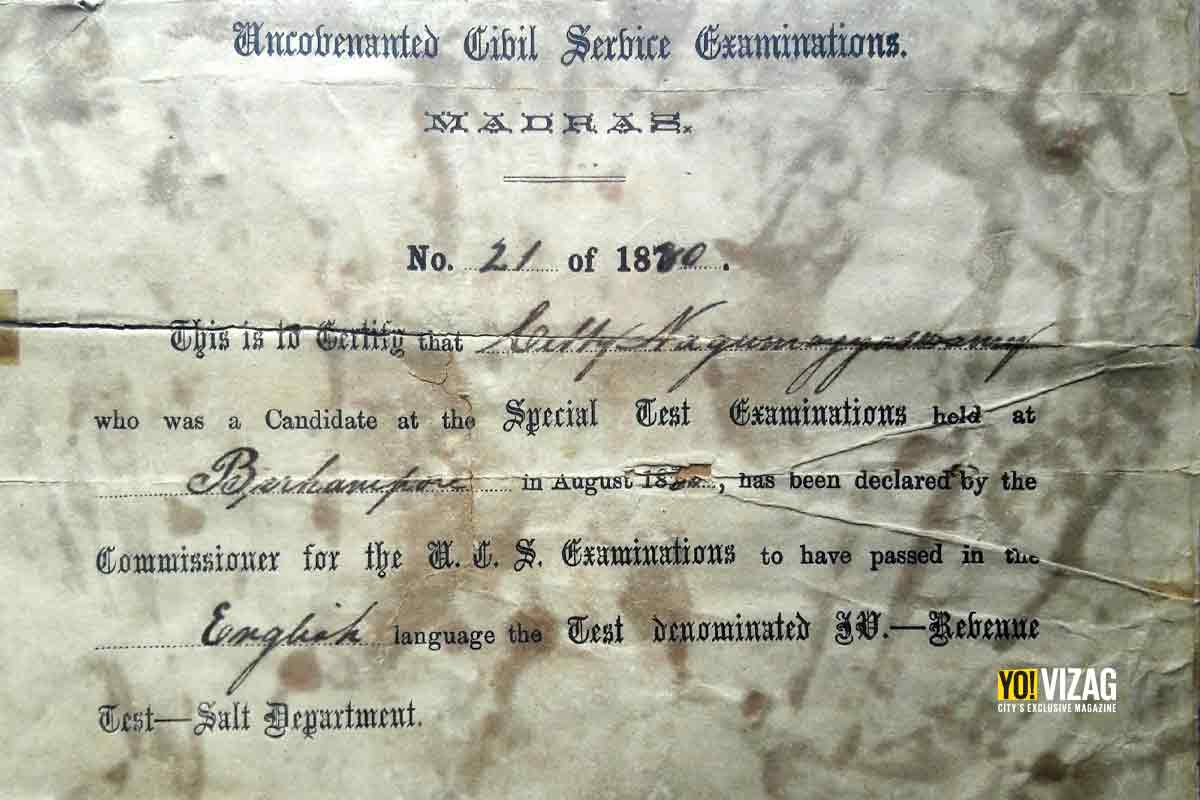 Uncovenanted Civil Service Examinations.
MADRAS.
No. 21 of 1880.
This is to Certify that
who was a Candidate at the Special Test Examinations held at
Berhampore in August 18, has been declared by the
Commissioner for the U. C. S. Examinations to have passed in the
English language the Test denominated IV.—Revenue
Test—Salt Department.
YO! VIZAG
CITY'S EXCLUSIVE MAGAZINE